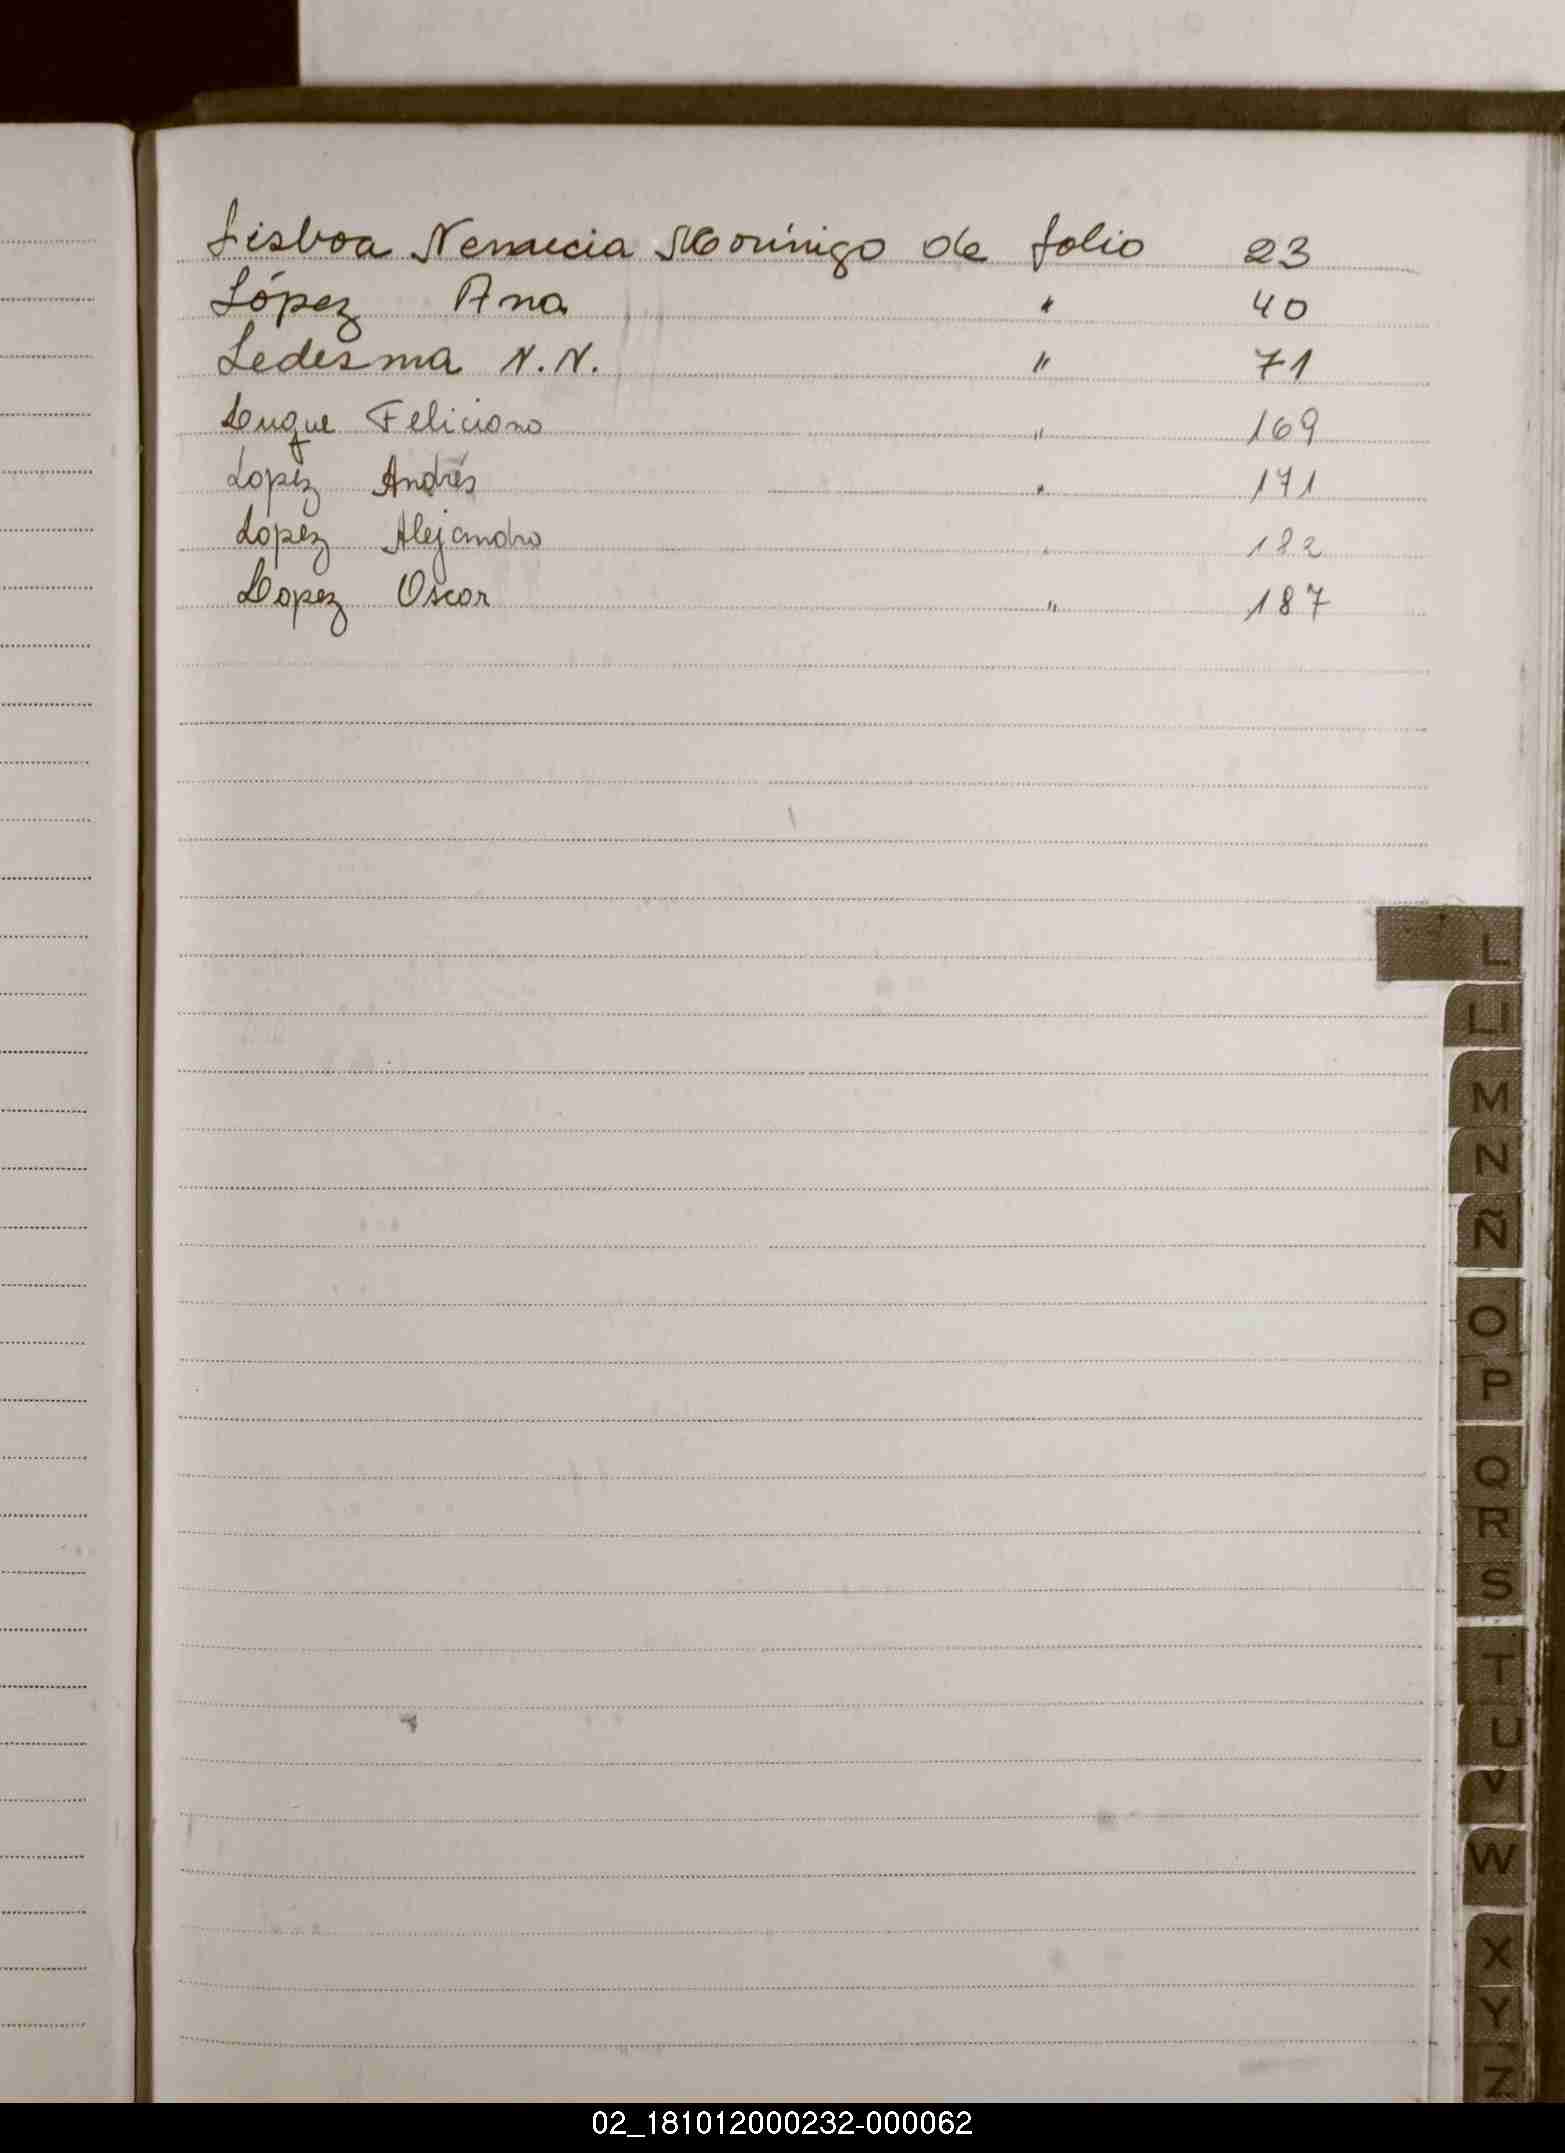 Lisboa Nemecia Morínigo de folio 23
López Ana " 40
Ledesma N.N. " 71
Luque Feliciano " 169
Lopez Andrés " 171
Lopez Alejandro " 182
Lopez Oscar " 187
L
Ll
M
N
Ñ
O
P
Q
R
S
T
U
V
W
X
Y
Z
02_181012000232-000062